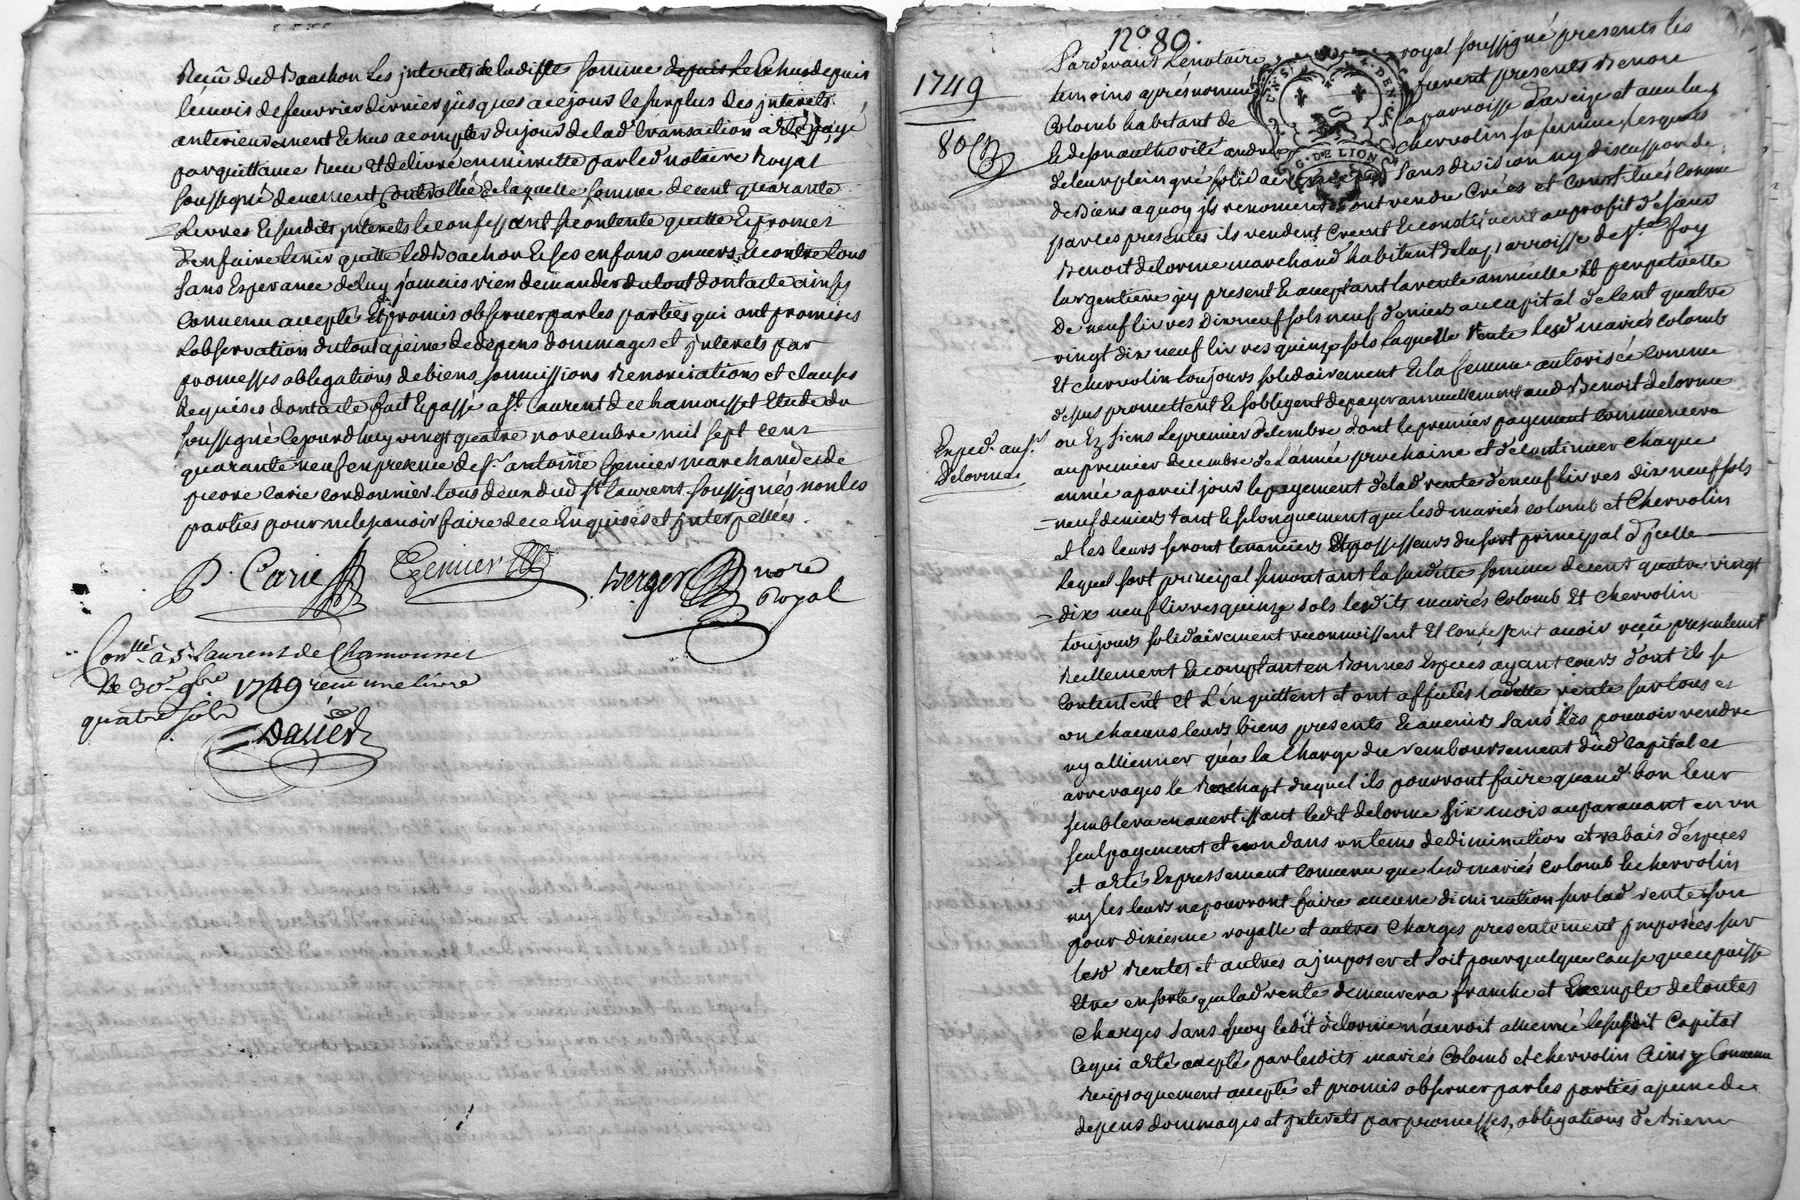 Reçu dud Bauchon Les jnterets de laditte somme depuis
lemois defeuvrier dernier jusques acejour le surplus des jnterets
anterieurement Echus acompter dujour delad. transaction a eté payé
parquittance Reçue Et delivré enminutte parled notaire Royal
soussigné deuement Controllée, de laquelle somme decent quarante
Livres Et susdits jnterets leconfessant secontente quitte Et promet
d'enfaire tenir quitte led Bauchon Et ses enfans envers Et contre tous
sans Esperance deluy jamais rien demander dutout dontacte ainsy
convenu accepté Et promis observer par les parties qui ont promis
Lobservation dutout apeine dedepens dommages et jnterets par
promesses obligations debiens soumissions Renonciations et clauses
Requises dontacte fait Et passé a St. Laurent de chamousset Etude du
soussigné cejourdhuy vingt quatre novembre mil sept cent
quarante neuf enpresence de sr. antoine Epenier marchand et de
pierre Carie cordonnier tous deux dud St Laurent soussignés non les
parties pour nelesçavoir faire dece Enquises et jnterpellées.
P. Carie Epenier Berger nore
Royal
Conllé à St Laurent de Chamousset
le 30e 9bre 1749 reçu une livre
quatre sols
Dauer
no. 80.
1749
80
Pardevant Lenotaire royal soussigné presents les
temoins aprésnommés furent presents Benoit
Colomb habitant de la parroisse d'aveize et
Et desonauthorité chervolin sa femme, lesquels
deleurpleingré solidairement sans division ny discussion de
de Biens aquoy ils renoncent ont vendu Créés et constitués comme
parces presentes ils vendent Créent Et constituent auproffit de sieur
Benoit delorme marchand habitant delaparroisse de Ste. foy
largentiere jcy present Et acceptant larente annuelle Et perpetuelle
De neuf livres dix neuf sols neuf deniers aucapital de Cent quatre
vingt dix neuf livres quinze sols laquelle Rente lesd mariés colomb
Et chervolin toujours solidairement Et la femme autorisée comme
desus promettent Et sobligent depayer annuellement aud Benoit delorme
Exped. au sr.
Delorme
ou Ez siens Lepremier decembre dont le premier payement commencera
aupremier decembre del'année prochaine et decontinuer chaque
année apareil jour lepayement delad rente deneuf livres dix neuf sols
neuf deniers tant Et silonguement que lesd mariés colomb et Chervolin
et les leurs seront tenanciers Et possesseurs dusort principal d'jcelle
Lequel sort principal semontant la susditte somme decent quatre vingt
dix neuf livres quinze sols lesdits mariés Colomb Et chervolin
toujours solidairement reconnoissent Et confessent avoir reçû presentement
Reellement Et comptant en Bonnes Especes ayant cours d'ont ils se
contentent et L'enquittent et ont affectés laditte rente sur tous et
un chacuns leurs biens presents Et avenir sans les pouvoir vendre
ny allienner qu'a la charge du remboursement dud Capital et
arrerages le Rachapt duquel ils pourront faire quand bon leur
semblera en avertissant ledit delorme six mois auparavant en un
seul payement et non dans un tems dediminution et rabais d'especes
et a eté Expressement convenu que lesd mariés colomb Et chervolin
ny les leurs nepourront faire aucune diminution sur lad rente soit
pour dixieme royalle et autres charges presentement jmposées sur
lesd Rentes et autres a jmposer et soit pour quelque cause que ce puisse
Etre ensorte quelad rente demeurera franche et Exempte detoutes
Charges sans quoy ledit delorme n'auroit allienné le susdit Capital
cequi a eté accepté par lesdits mariés Colomb et chervolin Ainsy Convenu
Reciproquement accepté et promis observer par les parties apeine de
depens dommages et jnterets par promesses, obligations de Biens